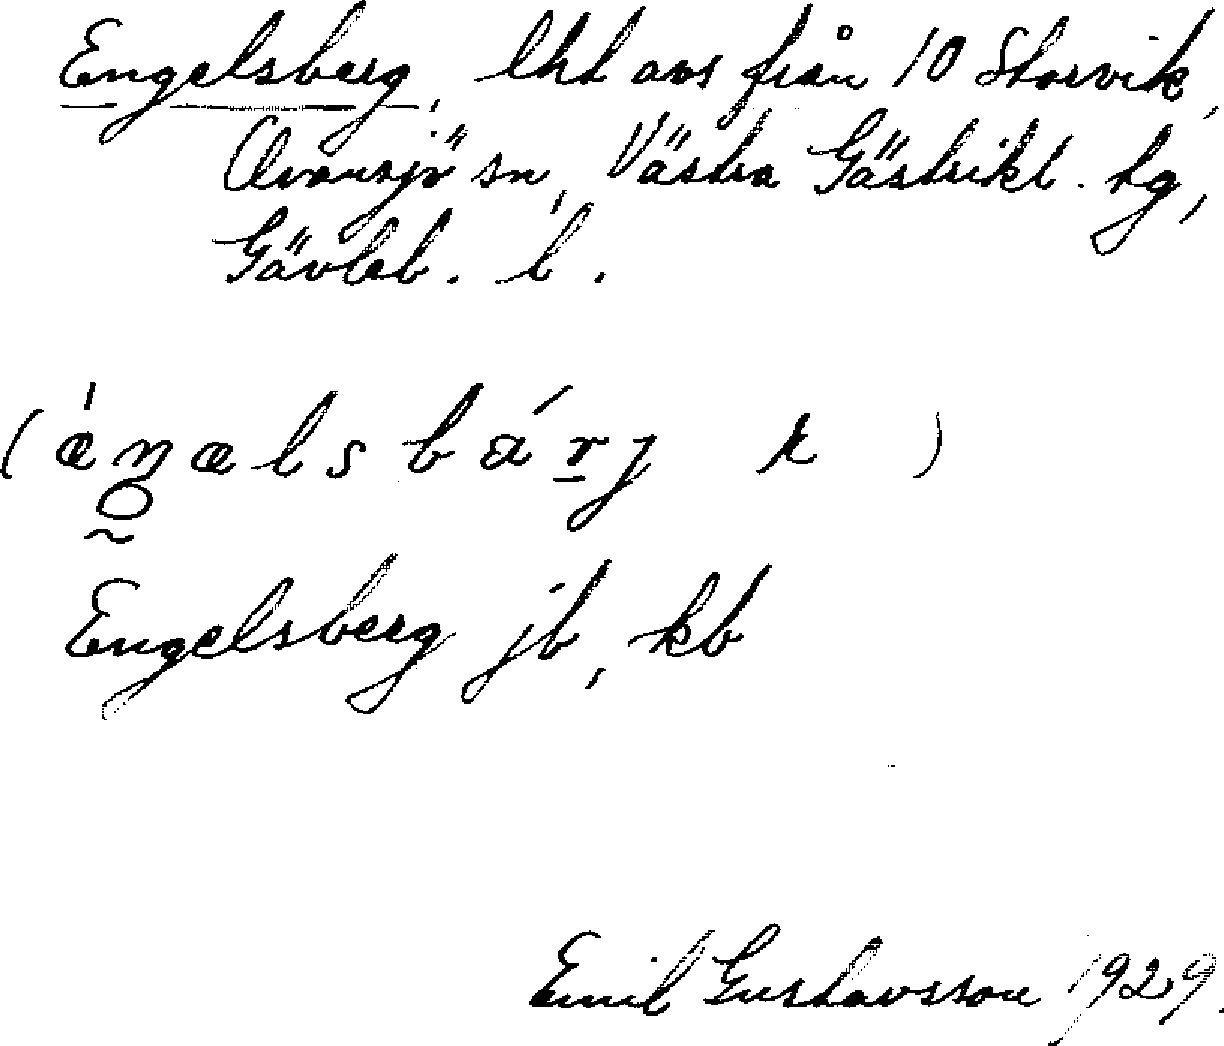 Engelsberg, lht avs från 10 Storvik,
Ovansjö sn, Västra Gästrikl. tg,
Gävleb. l.
Engelsberg jb, kb
Emil Gustavsson 1929.